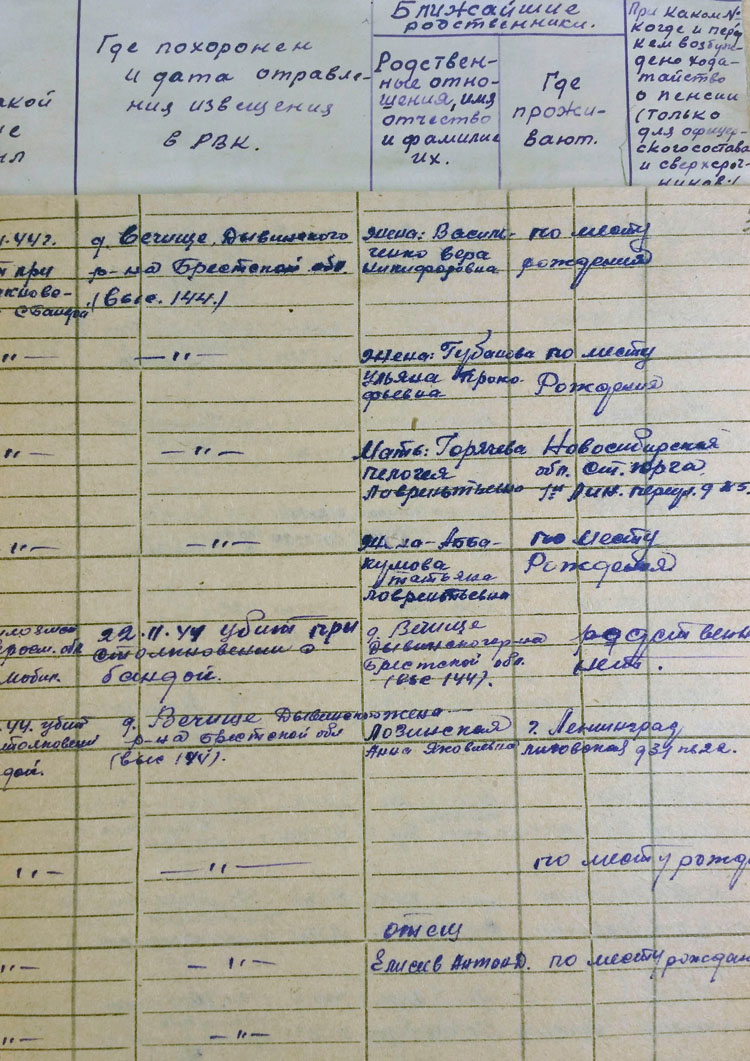 Где похоронен
и дата отправле-
ния извещения
в РВК.
Ближайшие
родственники.
Родствен-
ные отно-
шения, имя
отчество
и фамилие
их.
Где
прожи-
вают.
При каком №
когда и перед
кем возбуж-
дено хода-
тайство
о пенсии
(только
для офицер-
ского состава
и сверхсроч-
ников.)
д. Вечище Дывинского
р-на Брестской обл.
(выс. 144)
жена: Васил-
ченко Вера
Никифоровна
по месту
рождения
— " —
жена: Губанова
Ульяна Проко-
фьевна
по месту
Рождения
— " —
Мать: Горячева
Пелогея
Лаврентьевна
Новосибирская
обл. ст. Юрга
— " —
жена - Абба-
кумова
Татьяна
Лаврентьевна
по месту
Рождения
22.11.44 убит при
столкновении с
бандой.
д. Вечище
Дывинского р-на
Брестской обл.
(выс 144).
родственн
нет.
44. убит
д. Вечище Дывинского
р-на Брестской обл
(выс 144).
жена
Лозинская
Анна Яковлевна
г. Ленинград
— " —
по месту рожд
— " —
отец
Елисеев Антон Д.
по месту рождан
— " —